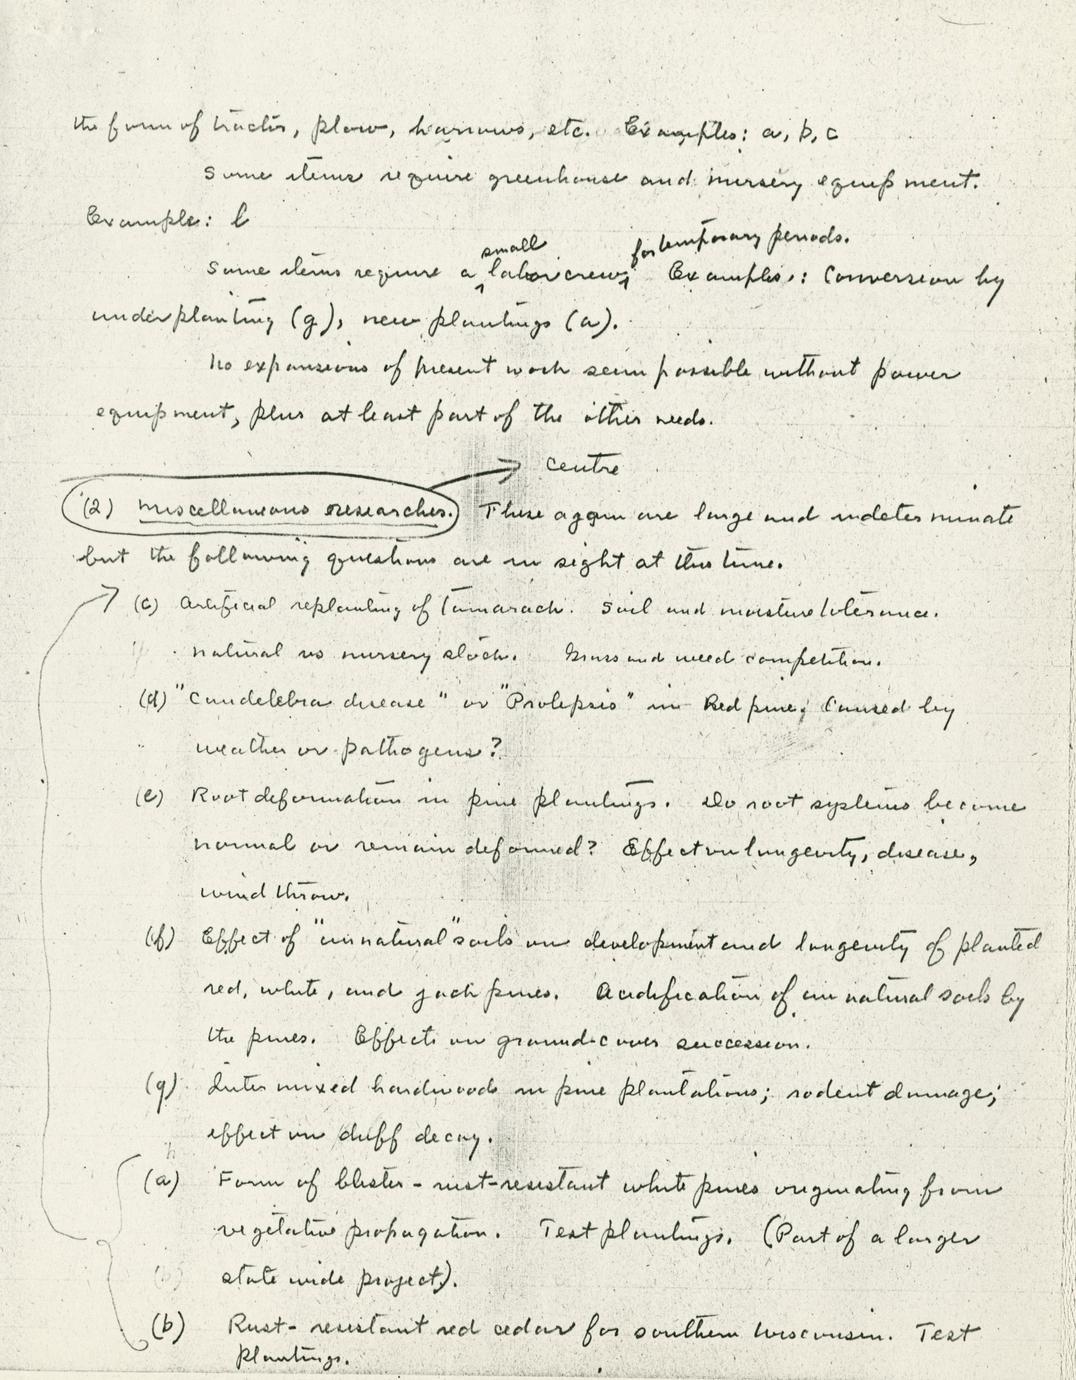 the form of tractor, plow, harrows, etc. Examples: a, b, c
Some items require greenhouse and nursery equipment.
Example: b
Some items require a small labor crew for temporary periods. Examples: Conversion by
underplanting (g), new plantings (a).
No expansions of present work seem possible without power
equipment, plus at least part of the other needs.
centre
(2) Miscellaneous researches. These again are large and indeterminate
but the following questions are in sight at this time.
(c) Artificial replanting of Tamarack. Soil and moisture tolerance.
Natural vs nursery stock. Grass and weed competition.
(d) "Candelebra disease" or "Prolepsis" in Red pine; Caused by
weather or pathogens?
(e) Root deformation in pine plantings. Do root systems become
normal or remain deformed? Effect on longevity, disease,
wind throw.
(f) Effect of "unnatural" soils on development and longevity of planted
red, white, and jack pines. Acidification of unnatural soils by
the pines. Effects on ground-cover succession.
(g) Inter mixed hardwoods in pine plantations; rodent damage;
effect on duff decay.
(a) Form of blister-rust-resistant white pines originating from
vegetative propagation. Test plantings. (Part of a larger
state wide project).
(b) Rust-resistant red cedar for southern Wisconsin. Test
plantings.